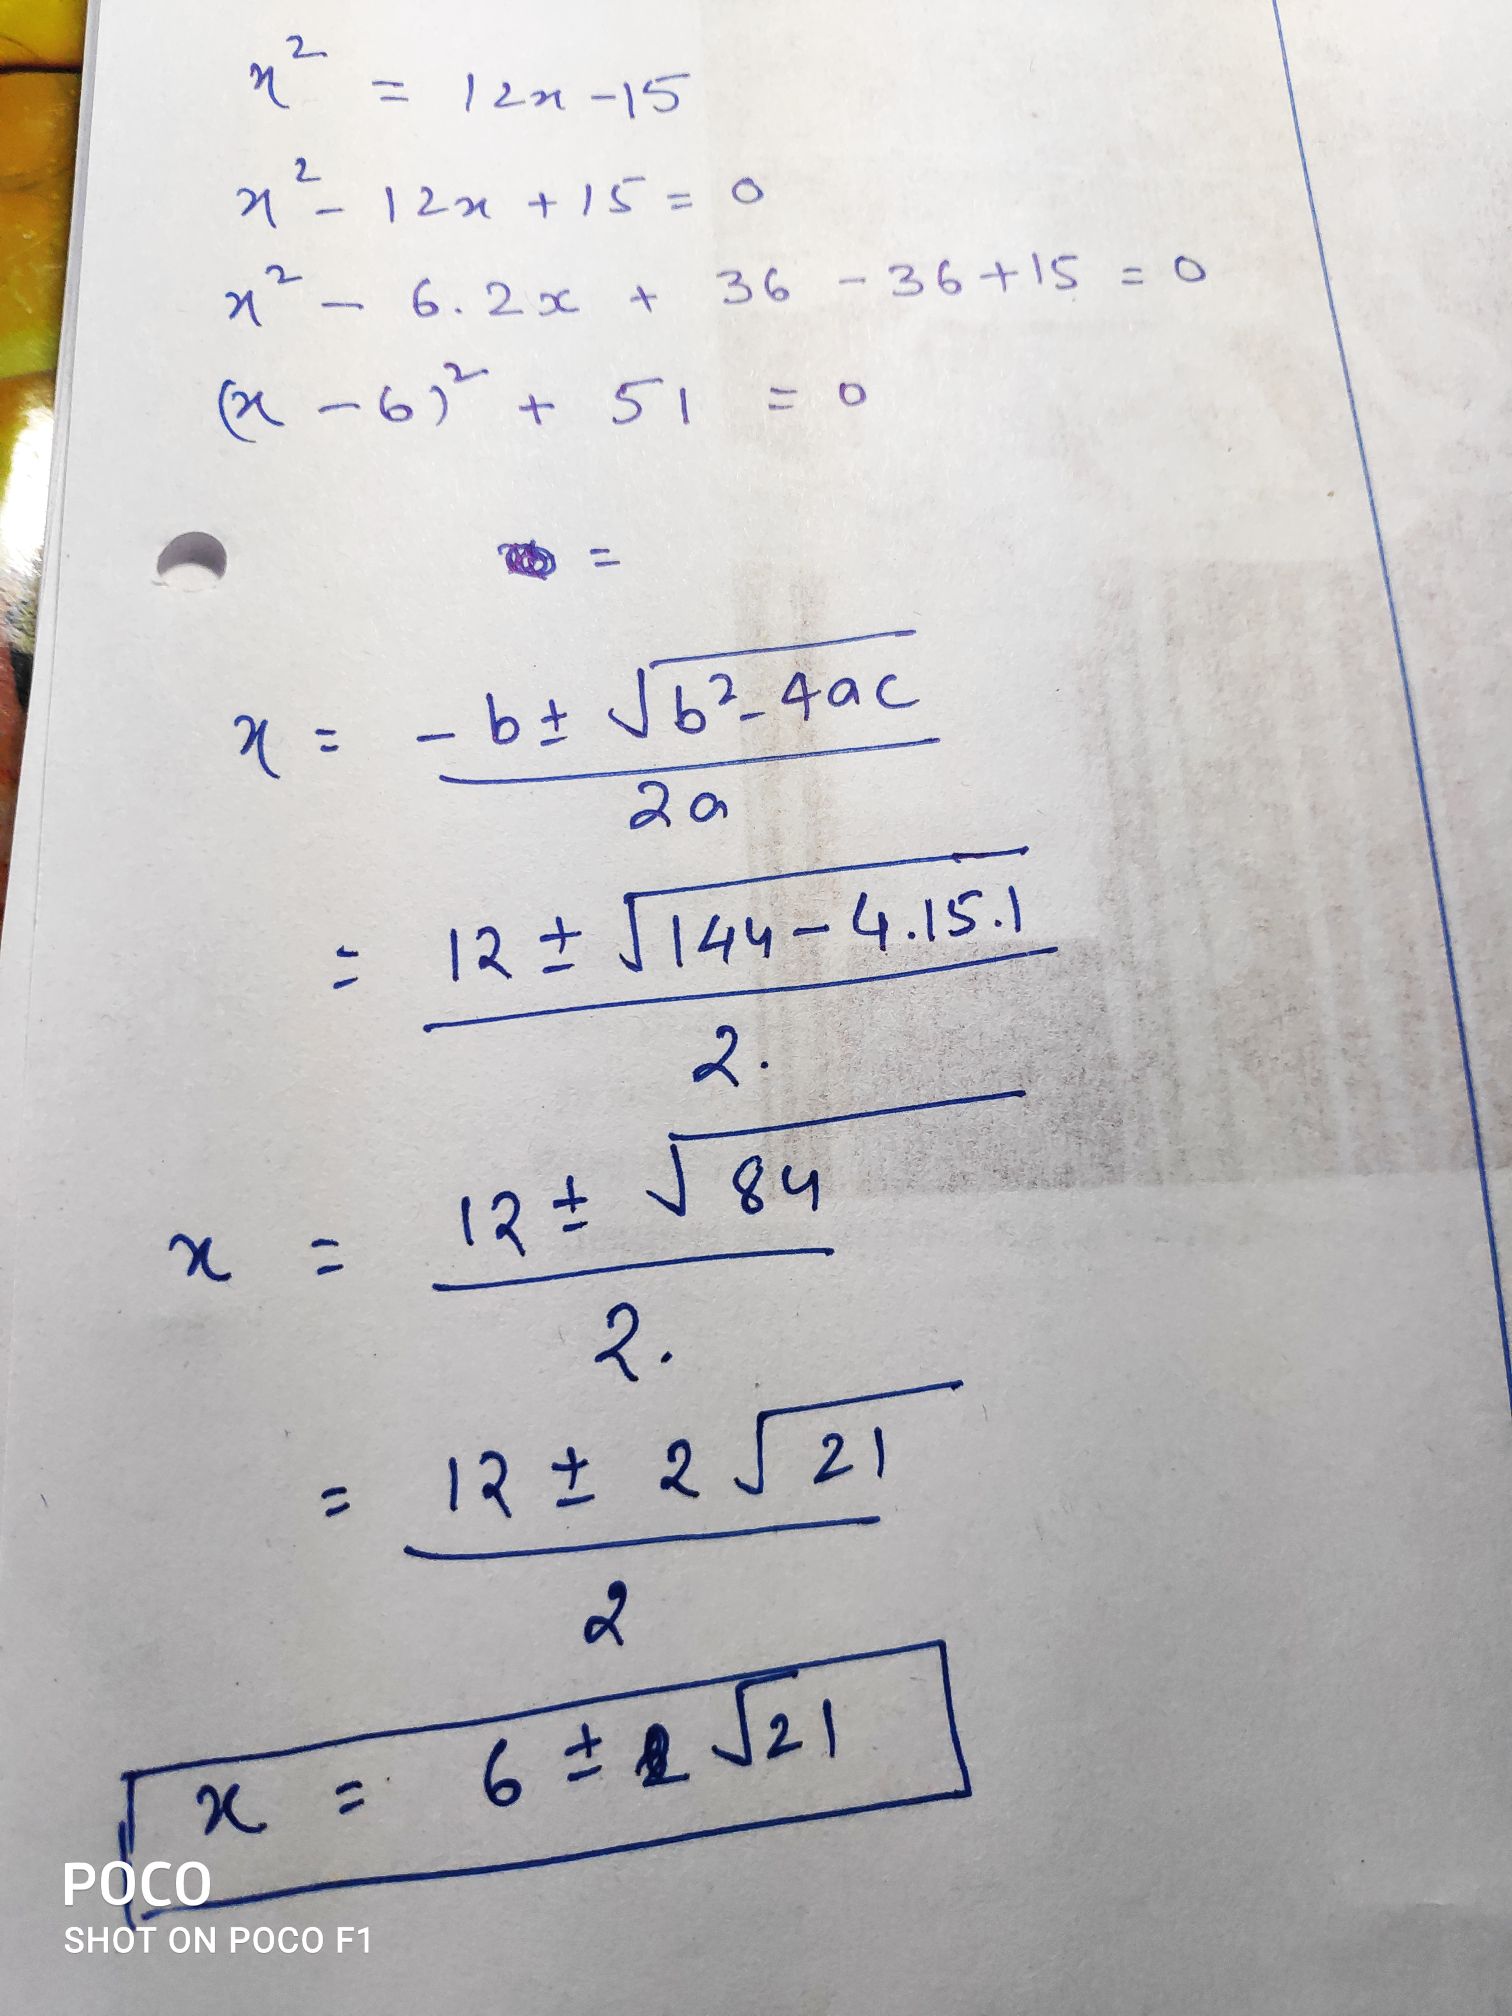 x² = 12x -15
x² - 12x + 15 = 0
x² - 6.2x + 36 - 36 + 15 = 0
(x - 6)² + 51 = 0
=
x = -b ± √b² - 4ac
2a
= 12 ± √144 - 4.15.1
2.
x = 12 ± √84
2.
= 12 ± 2√21
2
x = 6 ± √21
POCO
SHOT ON POCO F1